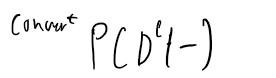 Convert P(D'|-)